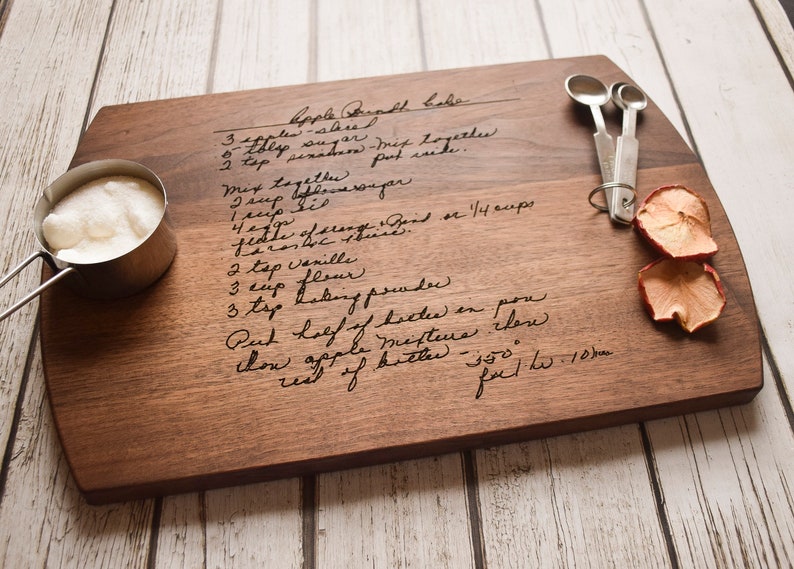 Apple Bundt Cake
3 apples - sliced
5 - tblsp sugar
2 tsp cinnamon - Mix together
put aside.
Mix together
2 cup sugar
1 cup oil
4 eggs
of orange or 1/4 cups
2 tsp vanilla
3 cup flour
3 tsp baking powder
Put half of batter in pan
then apple mixture then
rest of batter - 350°
for 1 hr - 10